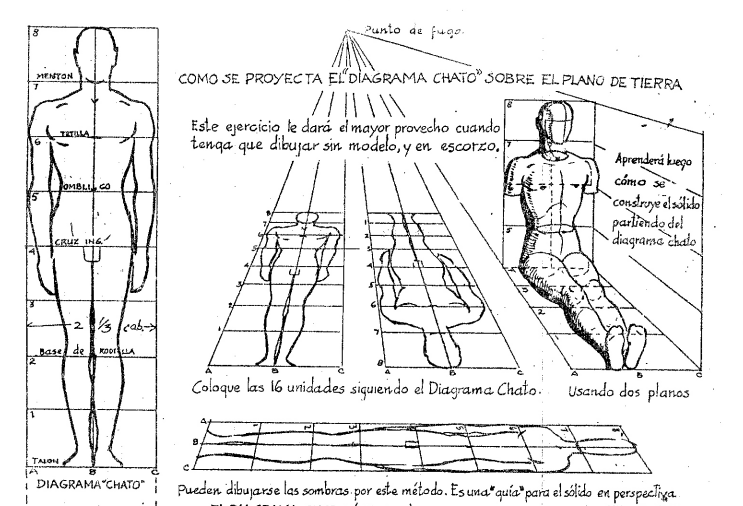 Punto de fuga.
COMO SE PROYECTA EL "DIAGRAMA CHATO" SOBRE EL PLANO DE TIERRA
Este ejercicio le dará el mayor provecho cuando
tenga que dibujar sin modelo, y en escorzo.
8
MENTON
7
TETILLA
6
OMBLIGO
5
CRUZ ING.
4
3
2 1/3 cab.
Base de RODILLA
2
1
TALON
A B C
DIAGRAMA "CHATO"
8
7
6
5
4
3
2
1
A B C
1
2
3
4
5
6
7
8 B C
Coloque las 16 unidades siguiendo el Diagrama Chato.
8
7
5
3
2
A B C
Aprenderá luego
cómo se
construye el sólido
partiendo del
diagrama chato
Usando dos planos
A 1 2 3 4 5 6 7 8
B
C
Pueden dibujarse las sombras por este método. Es una "guía" para el sólido en perspectiva